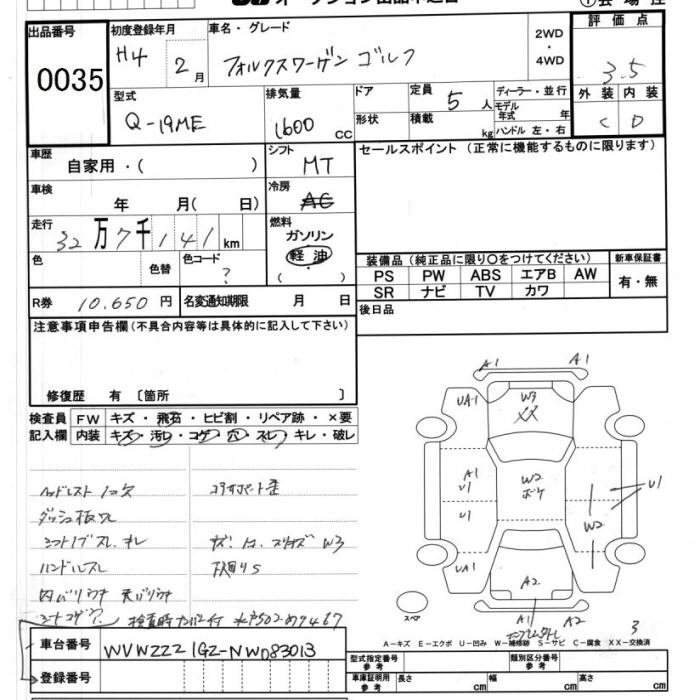 出品番号 0035
初度登録年月 H4 2月
車名・グレード フォルクスワーゲン ゴルフ
2WD・4WD
評価点 3.5
外装 C 内装 D
型式 Q-19ME
排気量 1600 cc
ドア
形状
定員 5人
積載 kg
ディーラー・並行
モデル年式 年
ハンドル 左・右
車歴 自家用・( )
シフト MT
セールスポイント (正常に機能するものに限ります)
車検 年 月( 日)
冷房 AC
走行 32万7千141km
燃料 ガソリン 軽油
色 色替 色コード ?
装備品 (純正品に限り○をつけてください)
新車保証書 有・無
PS PW ABS エアB AW
SR ナビ TV カワ
R券 10.650円
名変通知期限 月 日
後日品
注意事項申告欄 (不具合内容等は具体的に記入して下さい)
修復歴 有 〔箇所 〕
検査員記入欄
FW キズ・飛石・ヒビ割・リペア跡・×要
内装 キズ・汚レ・コゲ・穴・スレ・キレ・破レ
A1 A1
UA1 W3
XX
A1 U1 W2 ボケ U1
U1 W2
UA1
A2
A1 A2
3
スペア
ヘッドレスト1コ欠
ダッシュ板穴
ハンドルスレ
W3
A-キズ E-エクボ U-凹み W-補修跡 S-サビ C-腐食 XX-交換済
車台番号 WVWZZZ1GZ-NW083013
登録番号
型式指定番号 参考
類別区分番号 参考
車庫証明用 参考 長さ cm 幅 cm 高さ cm